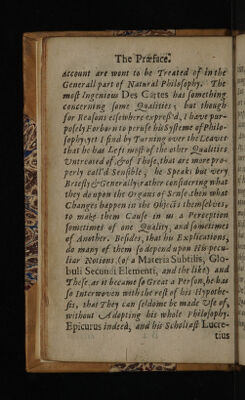 The Præface.
account are wont to be Treated of in the
Generall part of Natural Philosophy. The
most Ingenious Des Cartes has something
concerning some Qualities; but though
for Reasons elsewhere express'd, I have pur-
posely Forborn to peruse his Systeme of Philo-
sophy, yet I find by Turning over the Leaves
that he has Left most of the other Qualities
Untreated of, & of Those, that are more pro-
perly call'd Sensible, he Speaks but very
Briefly & Generally, rather considering what
they do upon the Organs of Sense, then what
Changes happen in the Objects themselves,
to make them Cause in us a Perception
sometimes of one Quality, and sometimes
of Another. Besides, that his Explications,
do many of them so depend upon His pecu-
liar Notions, (of a Materia Subtilis, Glo-
buli Secundi Elementi, and the like) and
These as it became so Great a Person, he has
so Interwoven with the rest of his Hypothe-
sis, that They can seldome be made Use of,
without Adopting his whole Philosophy.
Epicurus indeed, and his Scholiast Lucre-
tius